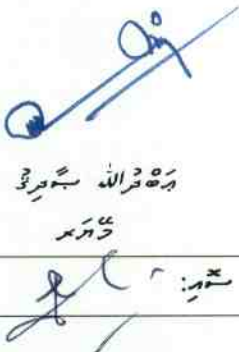 ޢަބްދުﷲ ޞާދިޤު
މޭޔަރ
ސޮއި: